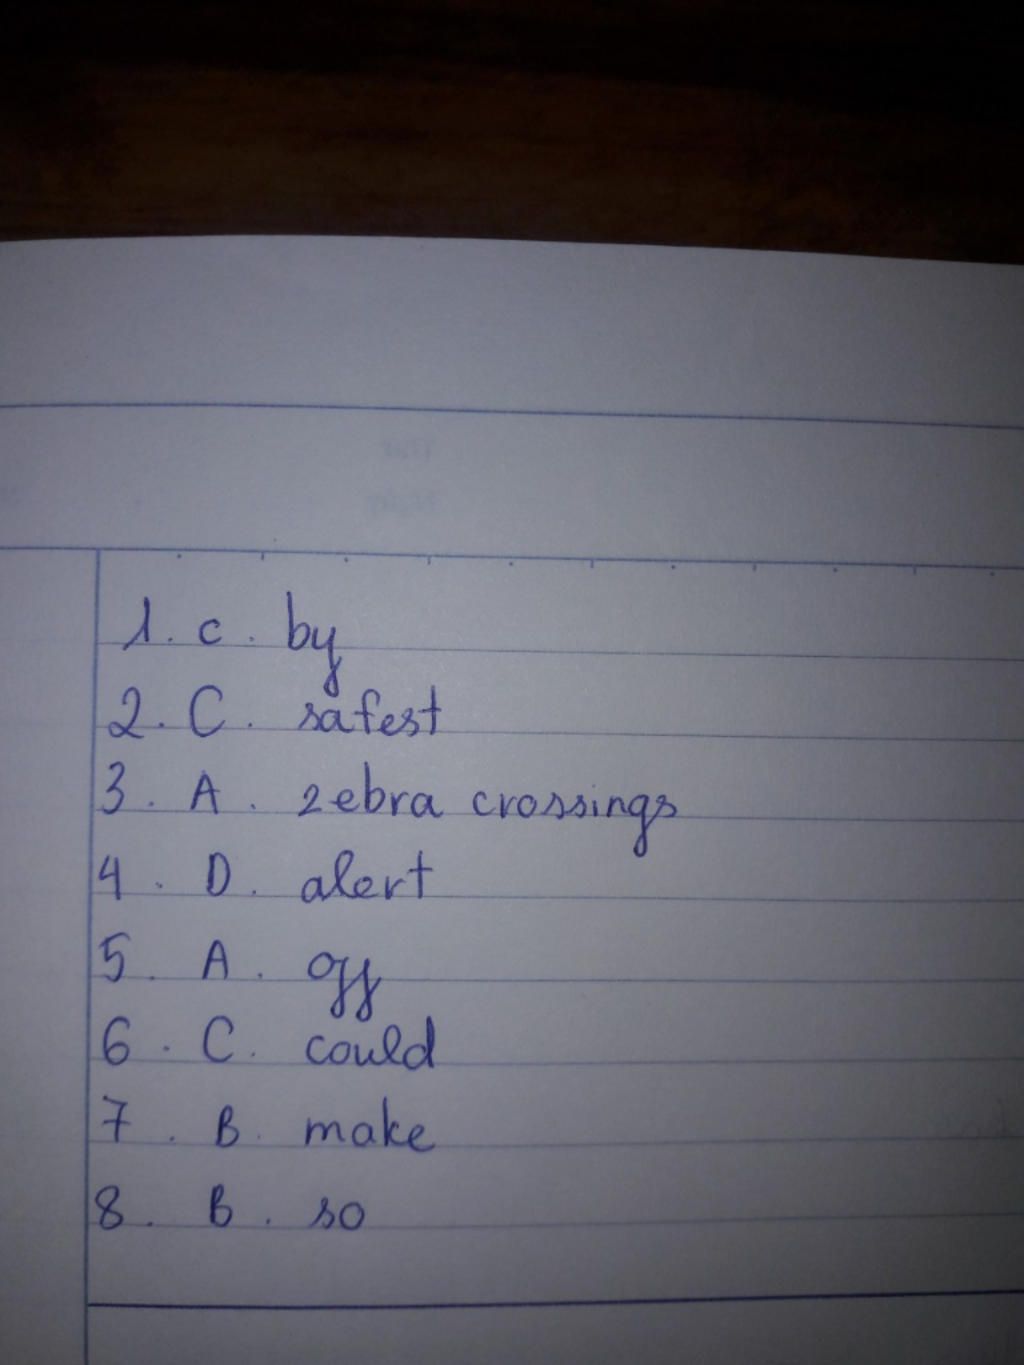 1. c. by
2. C. safest
3. A. zebra crossings
4. D. alert
5. A. off
6. C. could
7. B. make
8. B. so